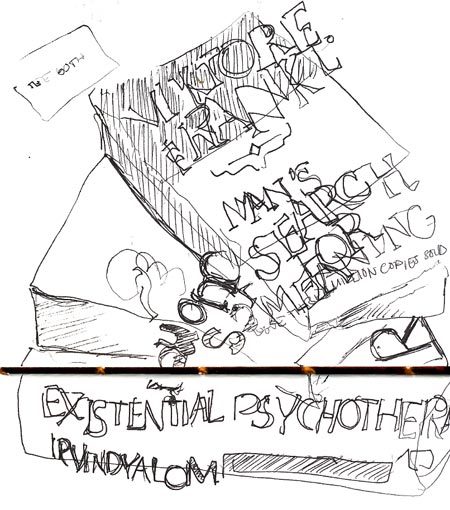 VIKTOR E.
FRANKL
MAN'S
SEARCH
FOR
MEANING
MILLION COPIES SOLD
EXISTENTIAL PSYCHOTHERA
IRVIN D YALOM